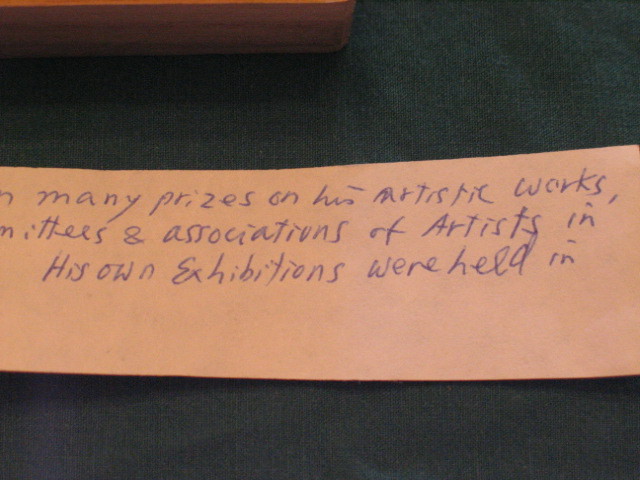 n many prizes on his Artistic works,
mittees & associations of Artists in
His own Exhibitions were held in